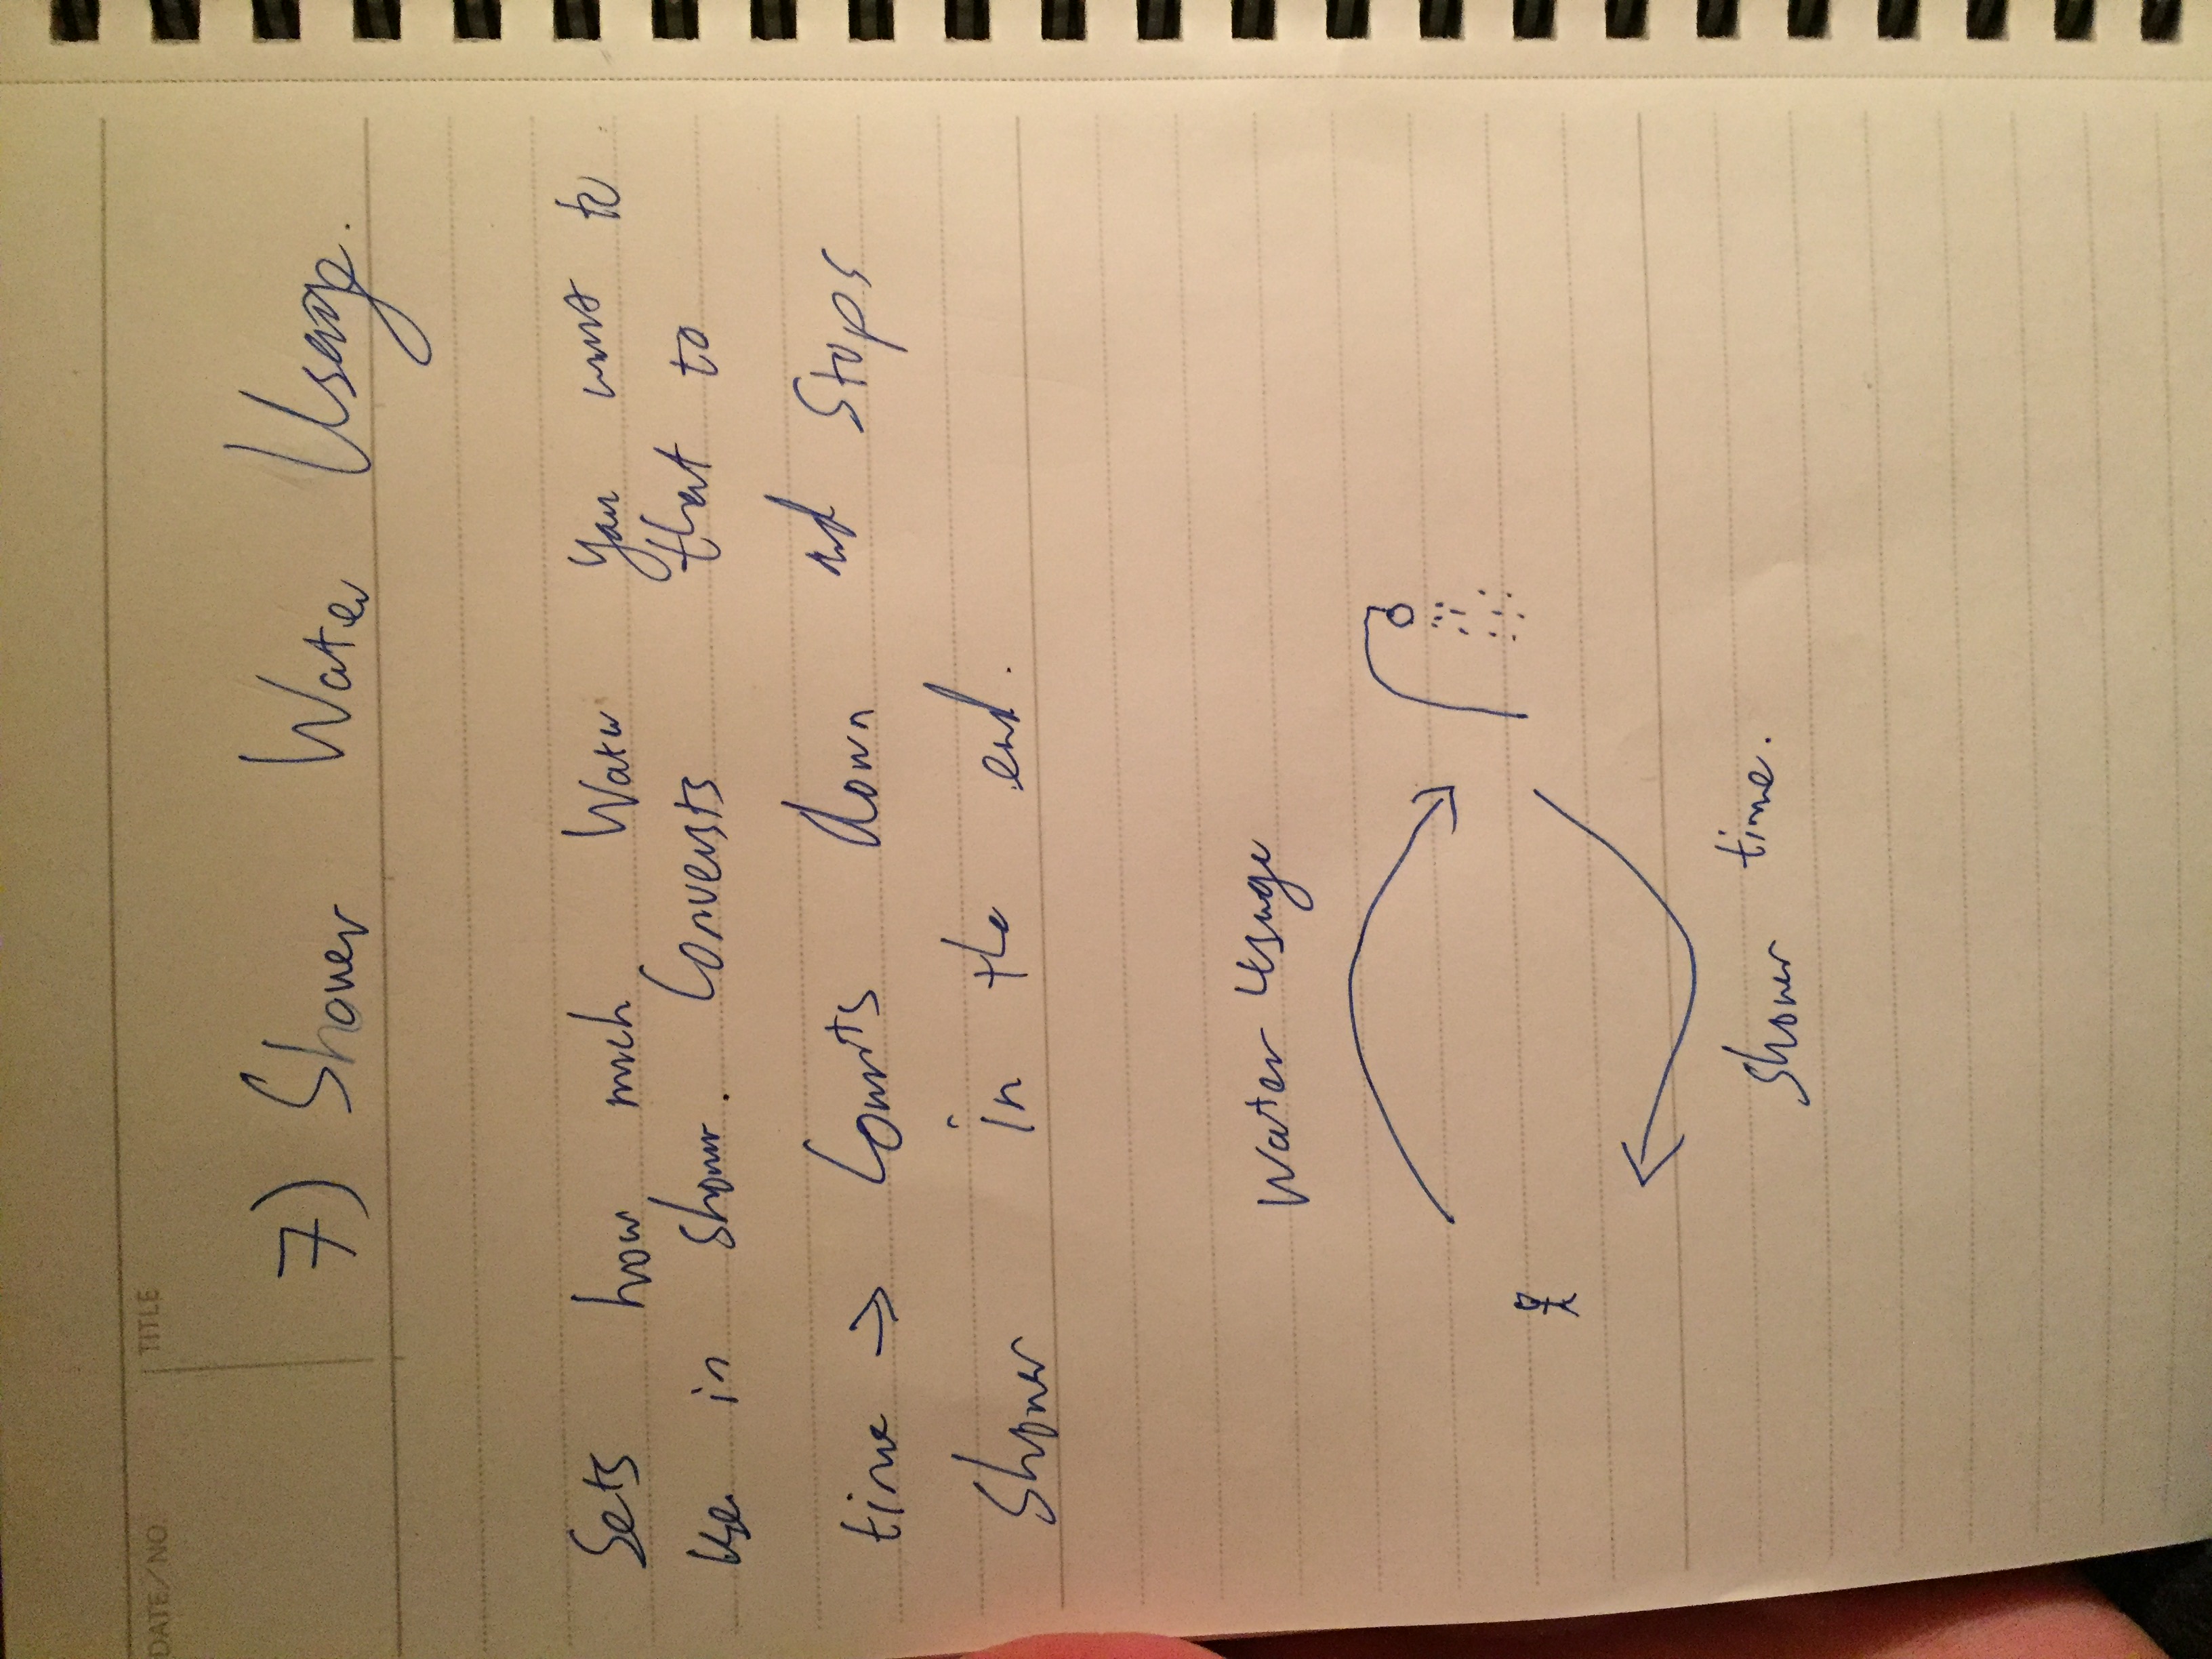 DATE/NO.
TITLE
7) Shower Water Usage.
Sets how much Water you want to
use in shower. Conversts that to
time → Counts down and stops
Shower in the end.
Water Usage
Shower time.